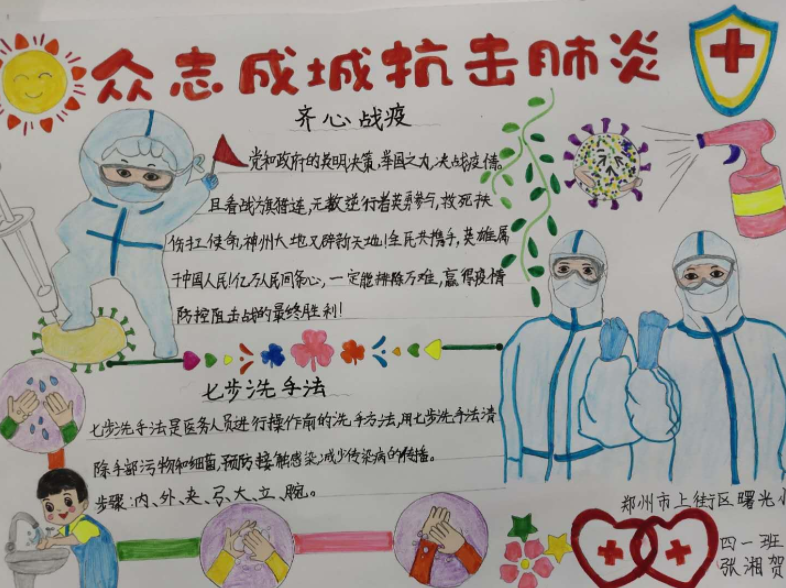 众志成城抗击肺炎
齐心战疫
党和政府的英明决策,举国之力,决战疫情。
且看战旗猎连,无数逆行者英勇参与,救死扶
伤扛使命,神州大地又辟新天地!全民共携手,英雄属
于中国人民!亿万人民同条心,一定能排除万难,赢得疫情
防控阻击战的最终胜利!
七步洗手法
七步洗手法是医务人员进行操作前的洗手方法,用七步洗手法清
除手部污物和细菌,预防接触感染,减少传染病的传播。
步骤:内、外、夹、弓、大、立、腕。
郑州市上街区曙光小
四一班
张湘贺